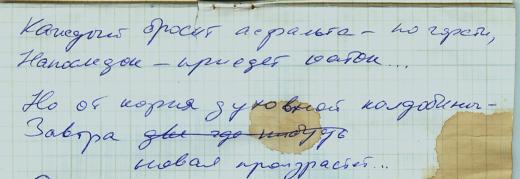 Каждый бросит асфальта – по горсти,
Напоследок – приедет каток...
Но от корня духовной колдобины –
Завтра где-нибудь
новая произрастёт...